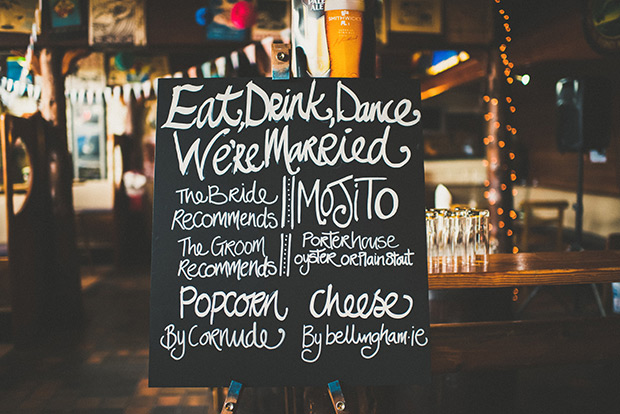 PALE
ALE
SMITHWICK'S
Eat, Drink, Dance
We're Married
The Bride
Recommends
Mojito
The Groom
Recommends
Porterhouse
oyster or Plain Stout
Popcorn
By Cornude
cheese
By bellingham.ie